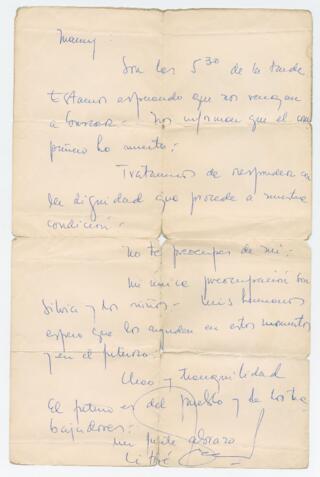 Manuy:
Son las 5 30 de la tarde
Estamos esperando que nos vengan
a buscar - Nos informan que el com
pañero ha muerto.
Trataremos de responder con
la dignidad que procede a nuestra
condición.
No te preocupes de mi.
Mi única preocupación son
Silvia y los niños - Mis hermanos
espero que los ayuden en estos momentos
y en el futuro.
Chao y tranquilidad
El futuro es del pueblo y de los tra
bajadores.
Un fuerte abrazo